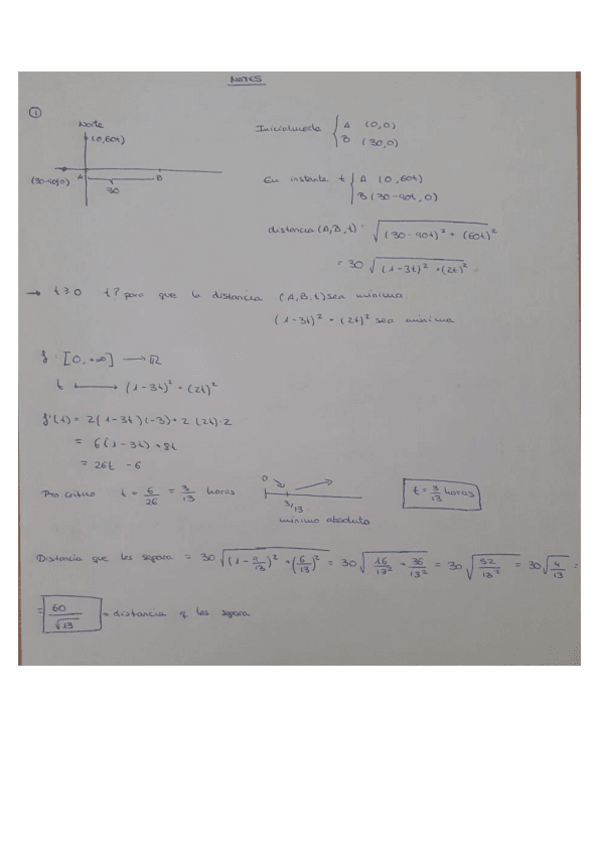 MATES
①
Norte
(0,60t)
(30-90t,0) A B
30
Inicialmente { A (0,0)
B (30,0)
En instante t { A (0,60t)
B (30-90t, 0)
distancia (A,B,t): √((30-90t)² + (60t)²)
= 30 √((1-3t)² + (2t)²)
→ t≥0 t? para que la distancia (A,B,t) sea mínima
(1-3t)² + (2t)² sea mínima
f: [0,+∞] → ℝ
t ⟼ (1-3t)² + (2t)²
f'(t) = 2(1-3t)(-3) + 2(2t)·2
= 6(1-3t) + 8t
= 26t - 6
Pto crítico t = 6/26 = 3/13 horas
0
3/13
mínimo absoluto
t = 3/13 horas
Distancia que les separa = 30√((1-9/13)² + (6/13)²) = 30√(16/13² + 36/13²) = 30√(52/13²) = 30√(4/13) =
= 60/√13 = distancia q les separa